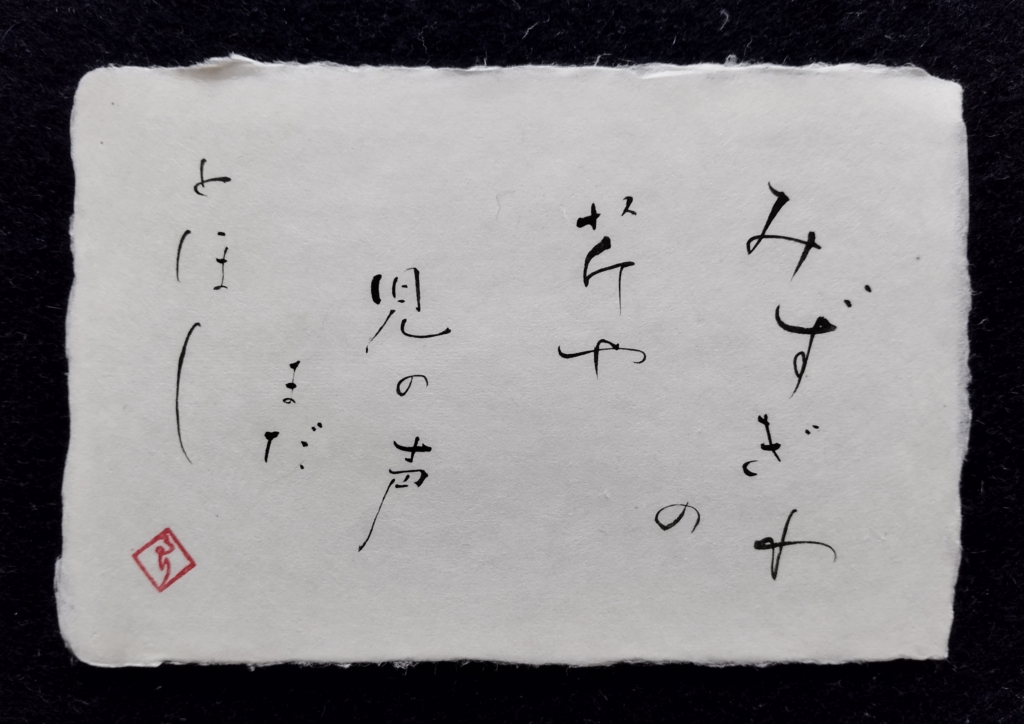 みずぎわ
の
芹や
児の声
まだ
とほし